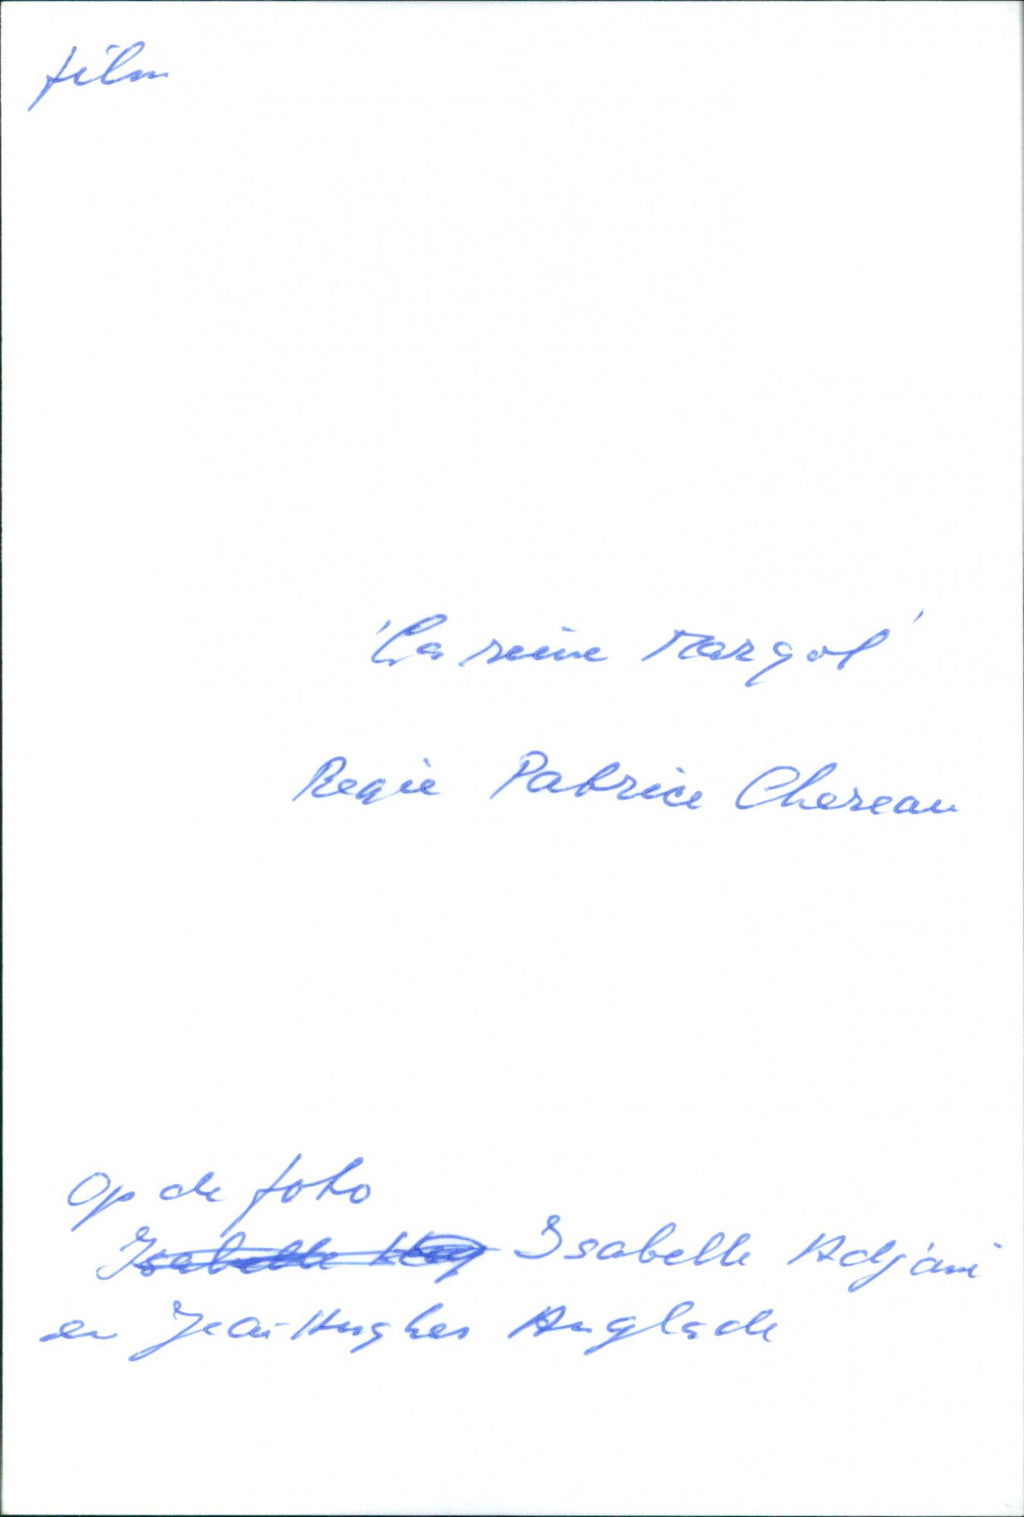 film
'La reine Margot'
Regie Patrice Chereau
Op de foto
Isabelle Adjani
en Jean-Hughes Anglade